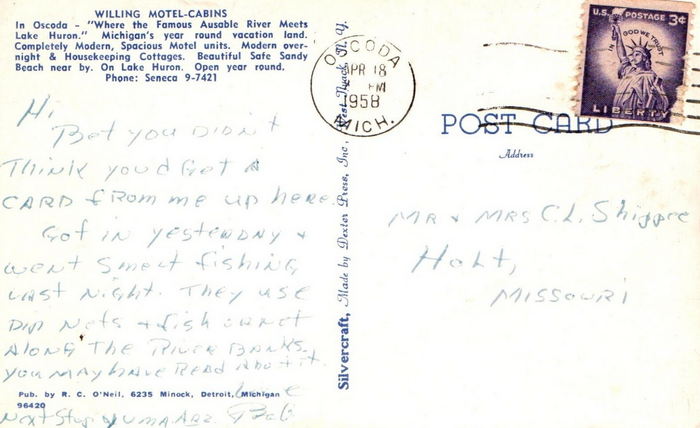 WILLING MOTEL-CABINS
In Oscoda - "Where the Famous Ausable River Meets
Lake Huron." Michigan's year round vacation land.
Completely Modern, Spacious Motel units. Modern over-
night & Housekeeping Cottages. Beautiful Safe Sandy
Beach near by. On Lake Huron. Open year round.
Phone: Seneca 9-7421
Hi,
Bet you DIDN't
Think you'd Get A
CARD from me up here.
Got in yesterday &
went smelt fishing
LAST Night. They use
Dip Nets & fish
Along The River Banks.
you may have Read About it.
Love
Next Stop Yuma Ariz. Bob
Pub. by R. C. O'Neil, 6235 Minock, Detroit, Michigan
96420
Silvercraft, Made by Dexter Press, Inc., West Nyack, N. Y.
OSCODA
APR 18
PM
1958
MICH.
U.S. POSTAGE 3¢
IN GOD WE TRUST
LIBERTY
POST CARD
Address
MR & MRS C.L. Shippee
Holt,
MISSOURI